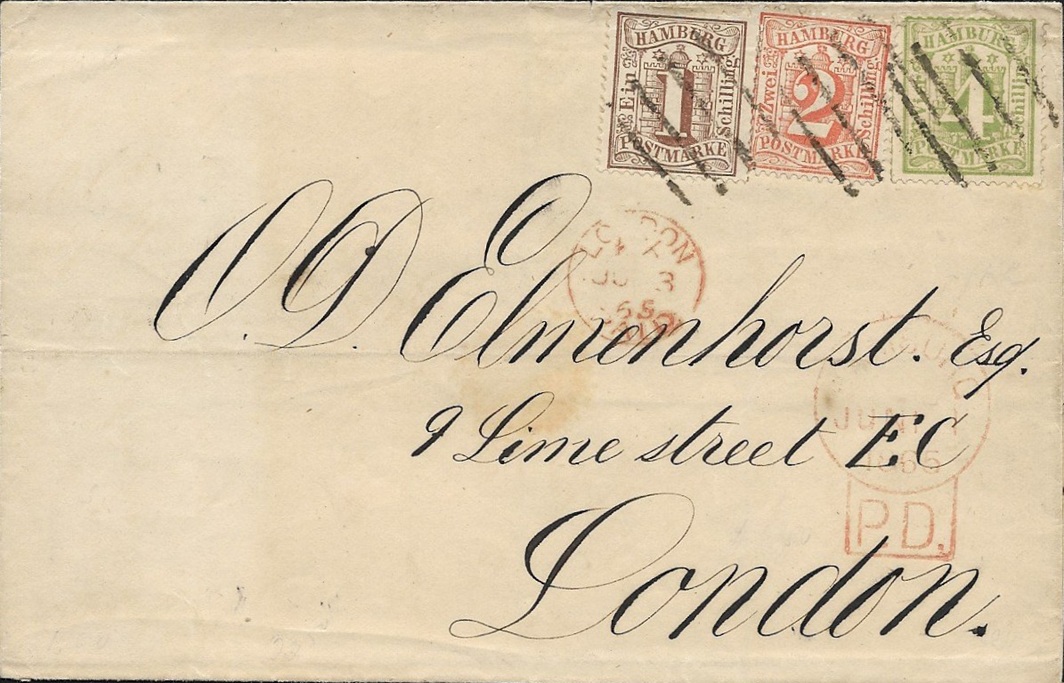 HAMBURG
Ein 1 Schilling
POSTMARKE
HAMBURG
Zwei 2 Schilling
POSTMARKE
HAMBURG
4 Schilling
POSTMARKE
LONDON
JU 3
65
PAID
O. D. Elmenhorst. Esq.
9 Lime street EC
London.
JUNI 1
1865
P.D.